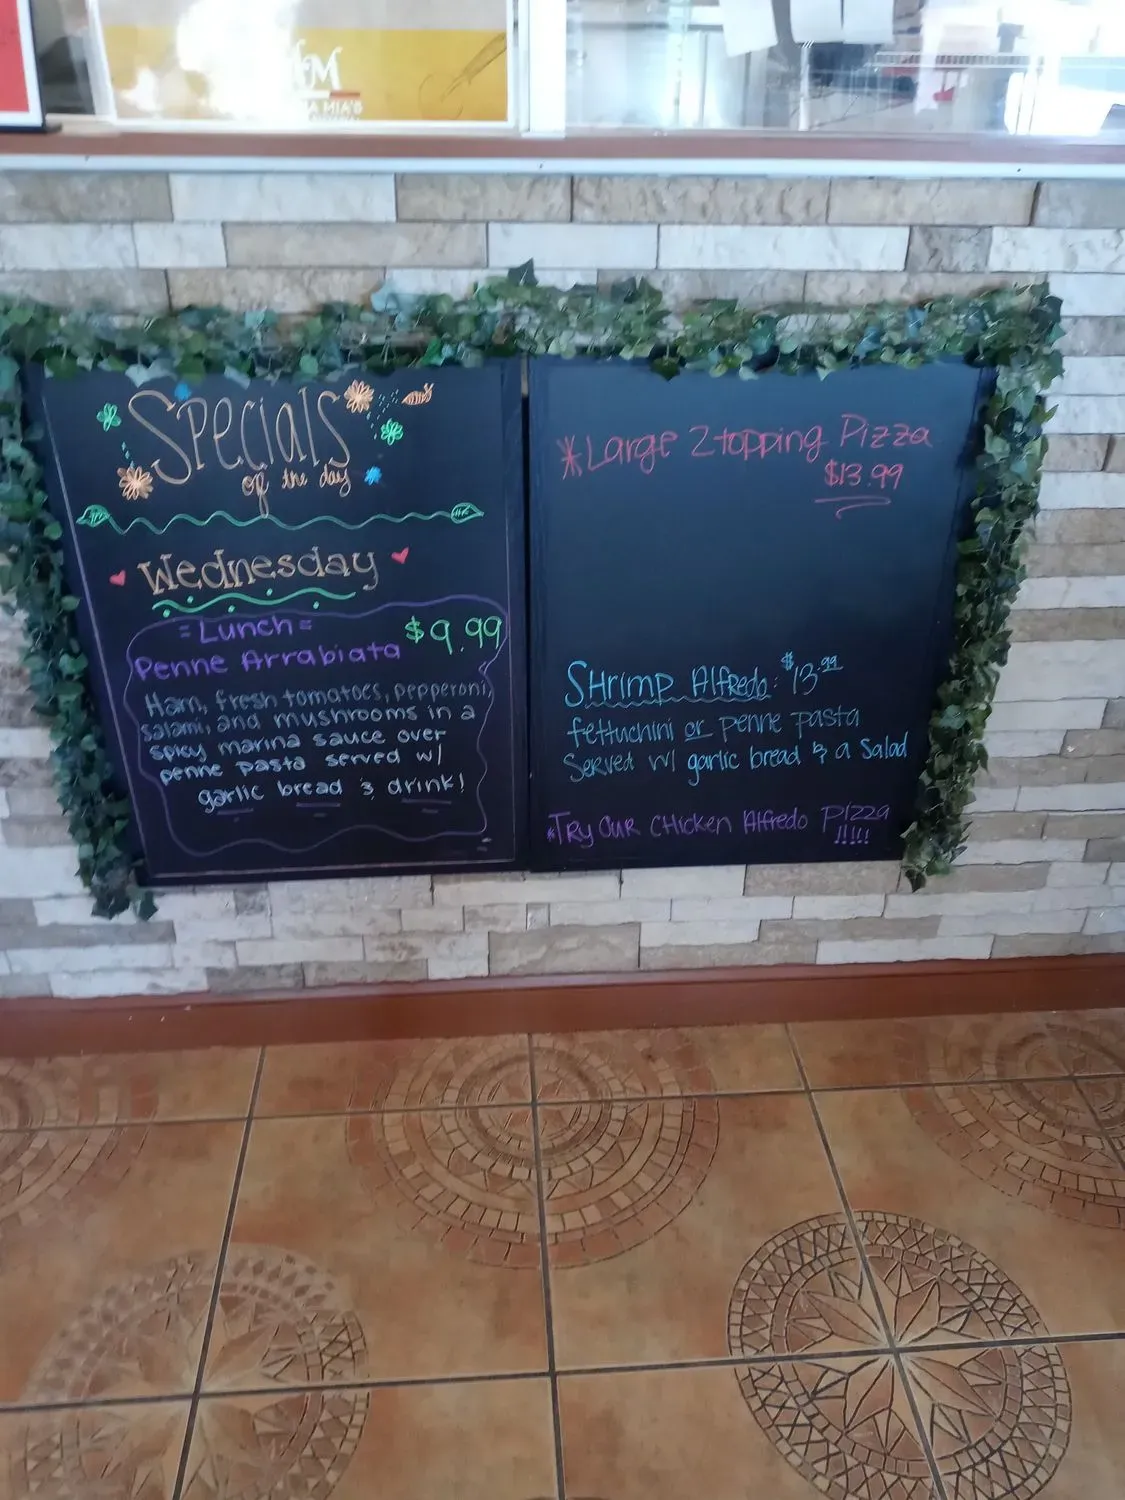 M
MIA'S
Specials
of the day
Wednesday
=Lunch=
$9.99
Penne Arrabiata
Ham, fresh tomatoes, pepperoni,
salami, and mushrooms in a
spicy marina sauce over
penne pasta served w/
garlic bread & drink!
*Large 2 topping Pizza
$13.99
SHrimp Alfredo: $13.99
fettuchini or penne pasta
Served w/ garlic bread & a Salad
*Try OUR CHicken Alfredo Pizza
!!!!!